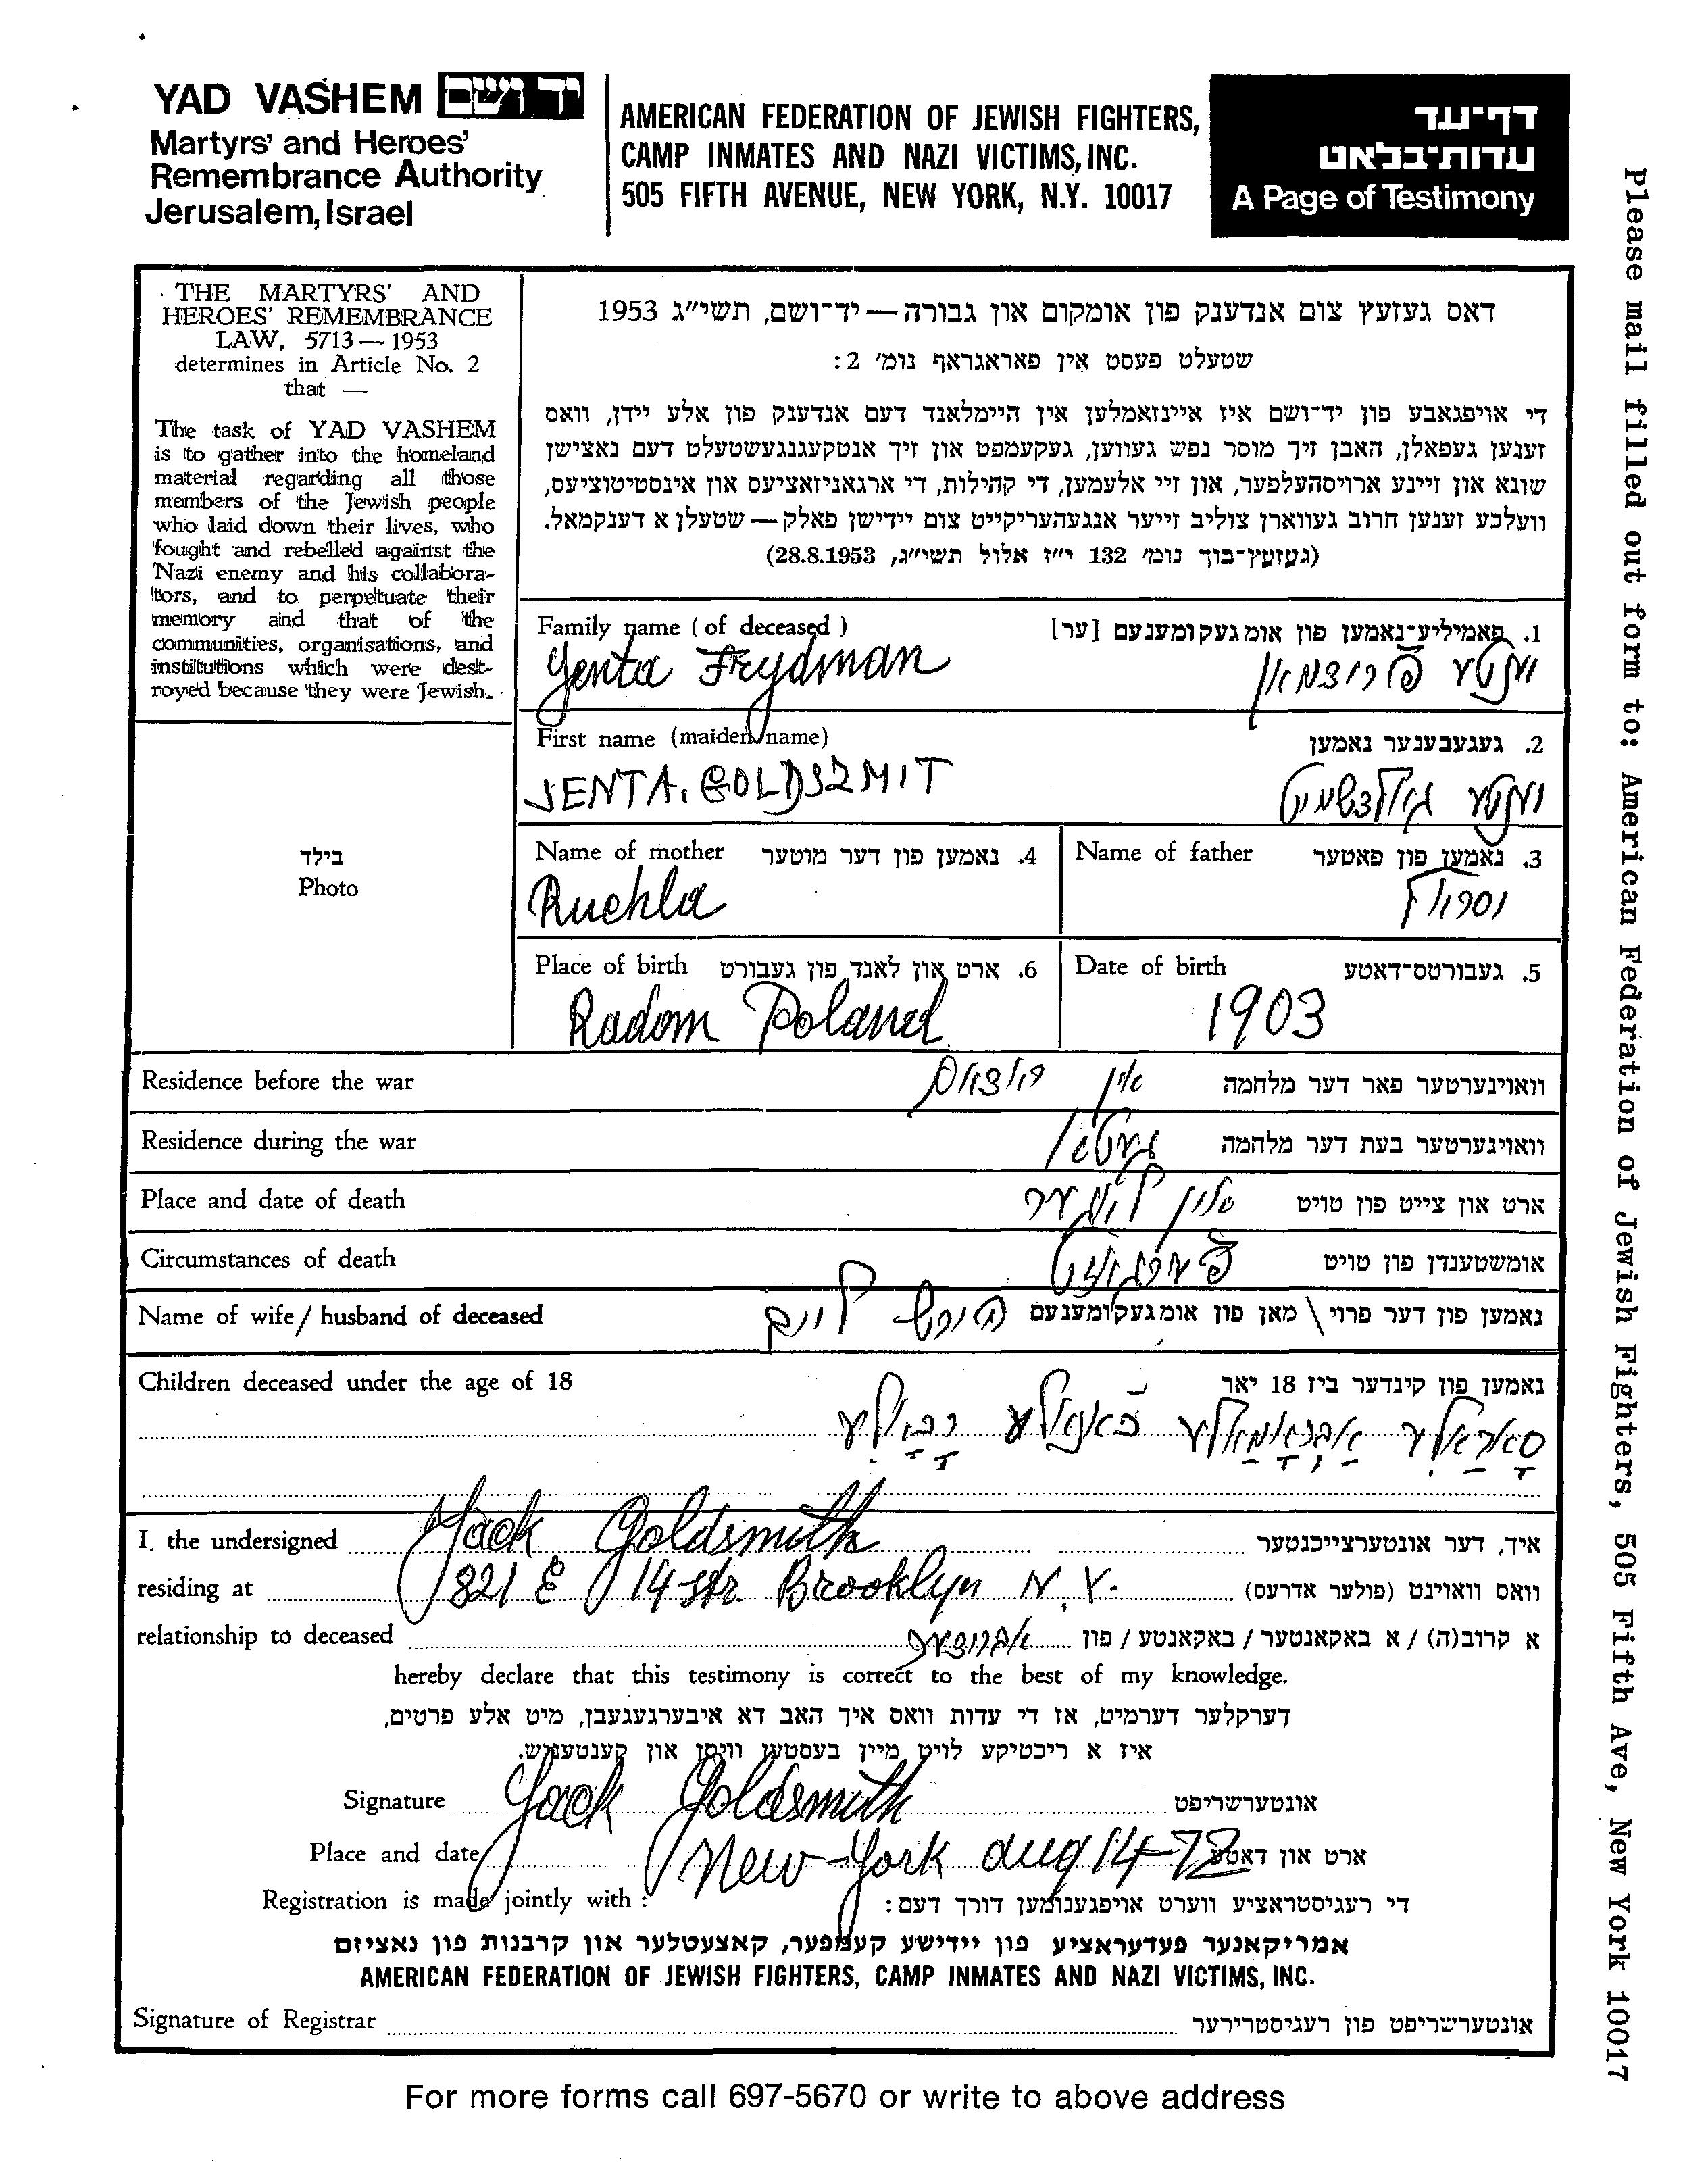 YAD VASHEM יד ושם
Martyrs' and Heroes'
Remembrance Authority
Jerusalem, Israel
AMERICAN FEDERATION OF JEWISH FIGHTERS,
CAMP INMATES AND NAZI VICTIMS, INC.
505 FIFTH AVENUE, NEW YORK, N.Y. 10017
דף־עד
עדות־בלאט
A Page of Testimony
Please mail filled out form to: American Federation of Jewish Fighters, 505 Fifth Ave, New York 10017
THE MARTYRS' AND
HEROES' REMEMBRANCE
LAW, 5713 — 1953
determines in Article No. 2
that —
The task of YAD VASHEM
is to gather into the homeland
material regarding all those
members of the Jewish people
who laid down their lives, who
fought and rebelled against the
Nazi enemy and his collabora-
tors, and to perpetuate their
memory and that of the
communities, organisations, and
institutions which were dest-
royed because they were Jewish.
דאס געזעץ צום אנדענק פון אומקום און גבורה — יד־ושם, תשי"ג 1953
שטעלט פעסט אין פאראגראף נומ' 2:
די אויפגאבע פון יד־ושם איז איינזאמלען אין היימלאנד דעם אנדענק פון אלע יידן, וואס
זענען געפאלן, האבן זיך מוסר נפש געווען, געקעמפט און זיך אנטקעגנגעשטעלט דעם נאצישן
שונא און זיינע ארויסהעלפער, און זיי אלעמען, די קהילות, די ארגאניזאציעס און אינסטיטוציעס,
וועלכע זענען חרוב געווארן צוליב זייער אנגעהעריקייט צום יידישן פאלק — שטעלן א דענקמאל.
(געזעץ־בוך נומ' 132 י"ז אלול תשי"ג, 28.8.1953)
Family name (of deceased) 1. פאמיליע־נאמען פון אומגעקומענעם [ער]
Yenta Frydman יענטע פרידמאן
First name (maiden name) 2. געגעבענער נאמען
JENTA. GOLDSZMIT יענטע גאלדשמיט
Name of mother 4. נאמען פון דער מוטער Name of father 3. נאמען פון פאטער
Ruchla
Place of birth 6. ארט און לאנד פון געבורט Date of birth 5. געבורטס־דאטע
Radom Poland 1903
Residence before the war אין ראדאם וואוינערטער פאר דער מלחמה
Residence during the war געטא וואוינערטער בעת דער מלחמה
Place and date of death אין לאגער ארט און צייט פון טויט
Circumstances of death אומשטענדן פון טויט
Name of wife / husband of deceased הירש לייב נאמען פון דער פרוי \ מאן פון אומגעקומענעם
Children deceased under the age of 18 נאמען פון קינדער ביז 18 יאר
I. the undersigned Jack Goldsmith איך, דער אונטערצייכנטער
residing at 821 E 14 Str. Brooklyn N.Y. וואס וואוינט (פולער אדרעס)
relationship to deceased א ברודער א קרוב(ה) / א באקאנטער / באקאנטע / פון
hereby declare that this testimony is correct to the best of my knowledge.
דערקלער דערמיט, אז די עדות וואס איך האב דא איבערגעגעבן, מיט אלע פרטים,
איז א ריכטיקע לויט מיין בעסטען וויסן און קענטעניש.
Signature Jack Goldsmith אונטערשריפט
Place and date New-York aug 14-72 ארט און דאטע
Registration is made jointly with : די רעגיסטראציע ווערט אויפגענומען דורך דעם:
אמריקאנער פעדעראציע פון יידישע קעמפער, קאצעטלער און קרבנות פון נאציזם
AMERICAN FEDERATION OF JEWISH FIGHTERS, CAMP INMATES AND NAZI VICTIMS, INC.
Signature of Registrar אונטערשריפט פון רעגיסטרירער
For more forms call 697-5670 or write to above address